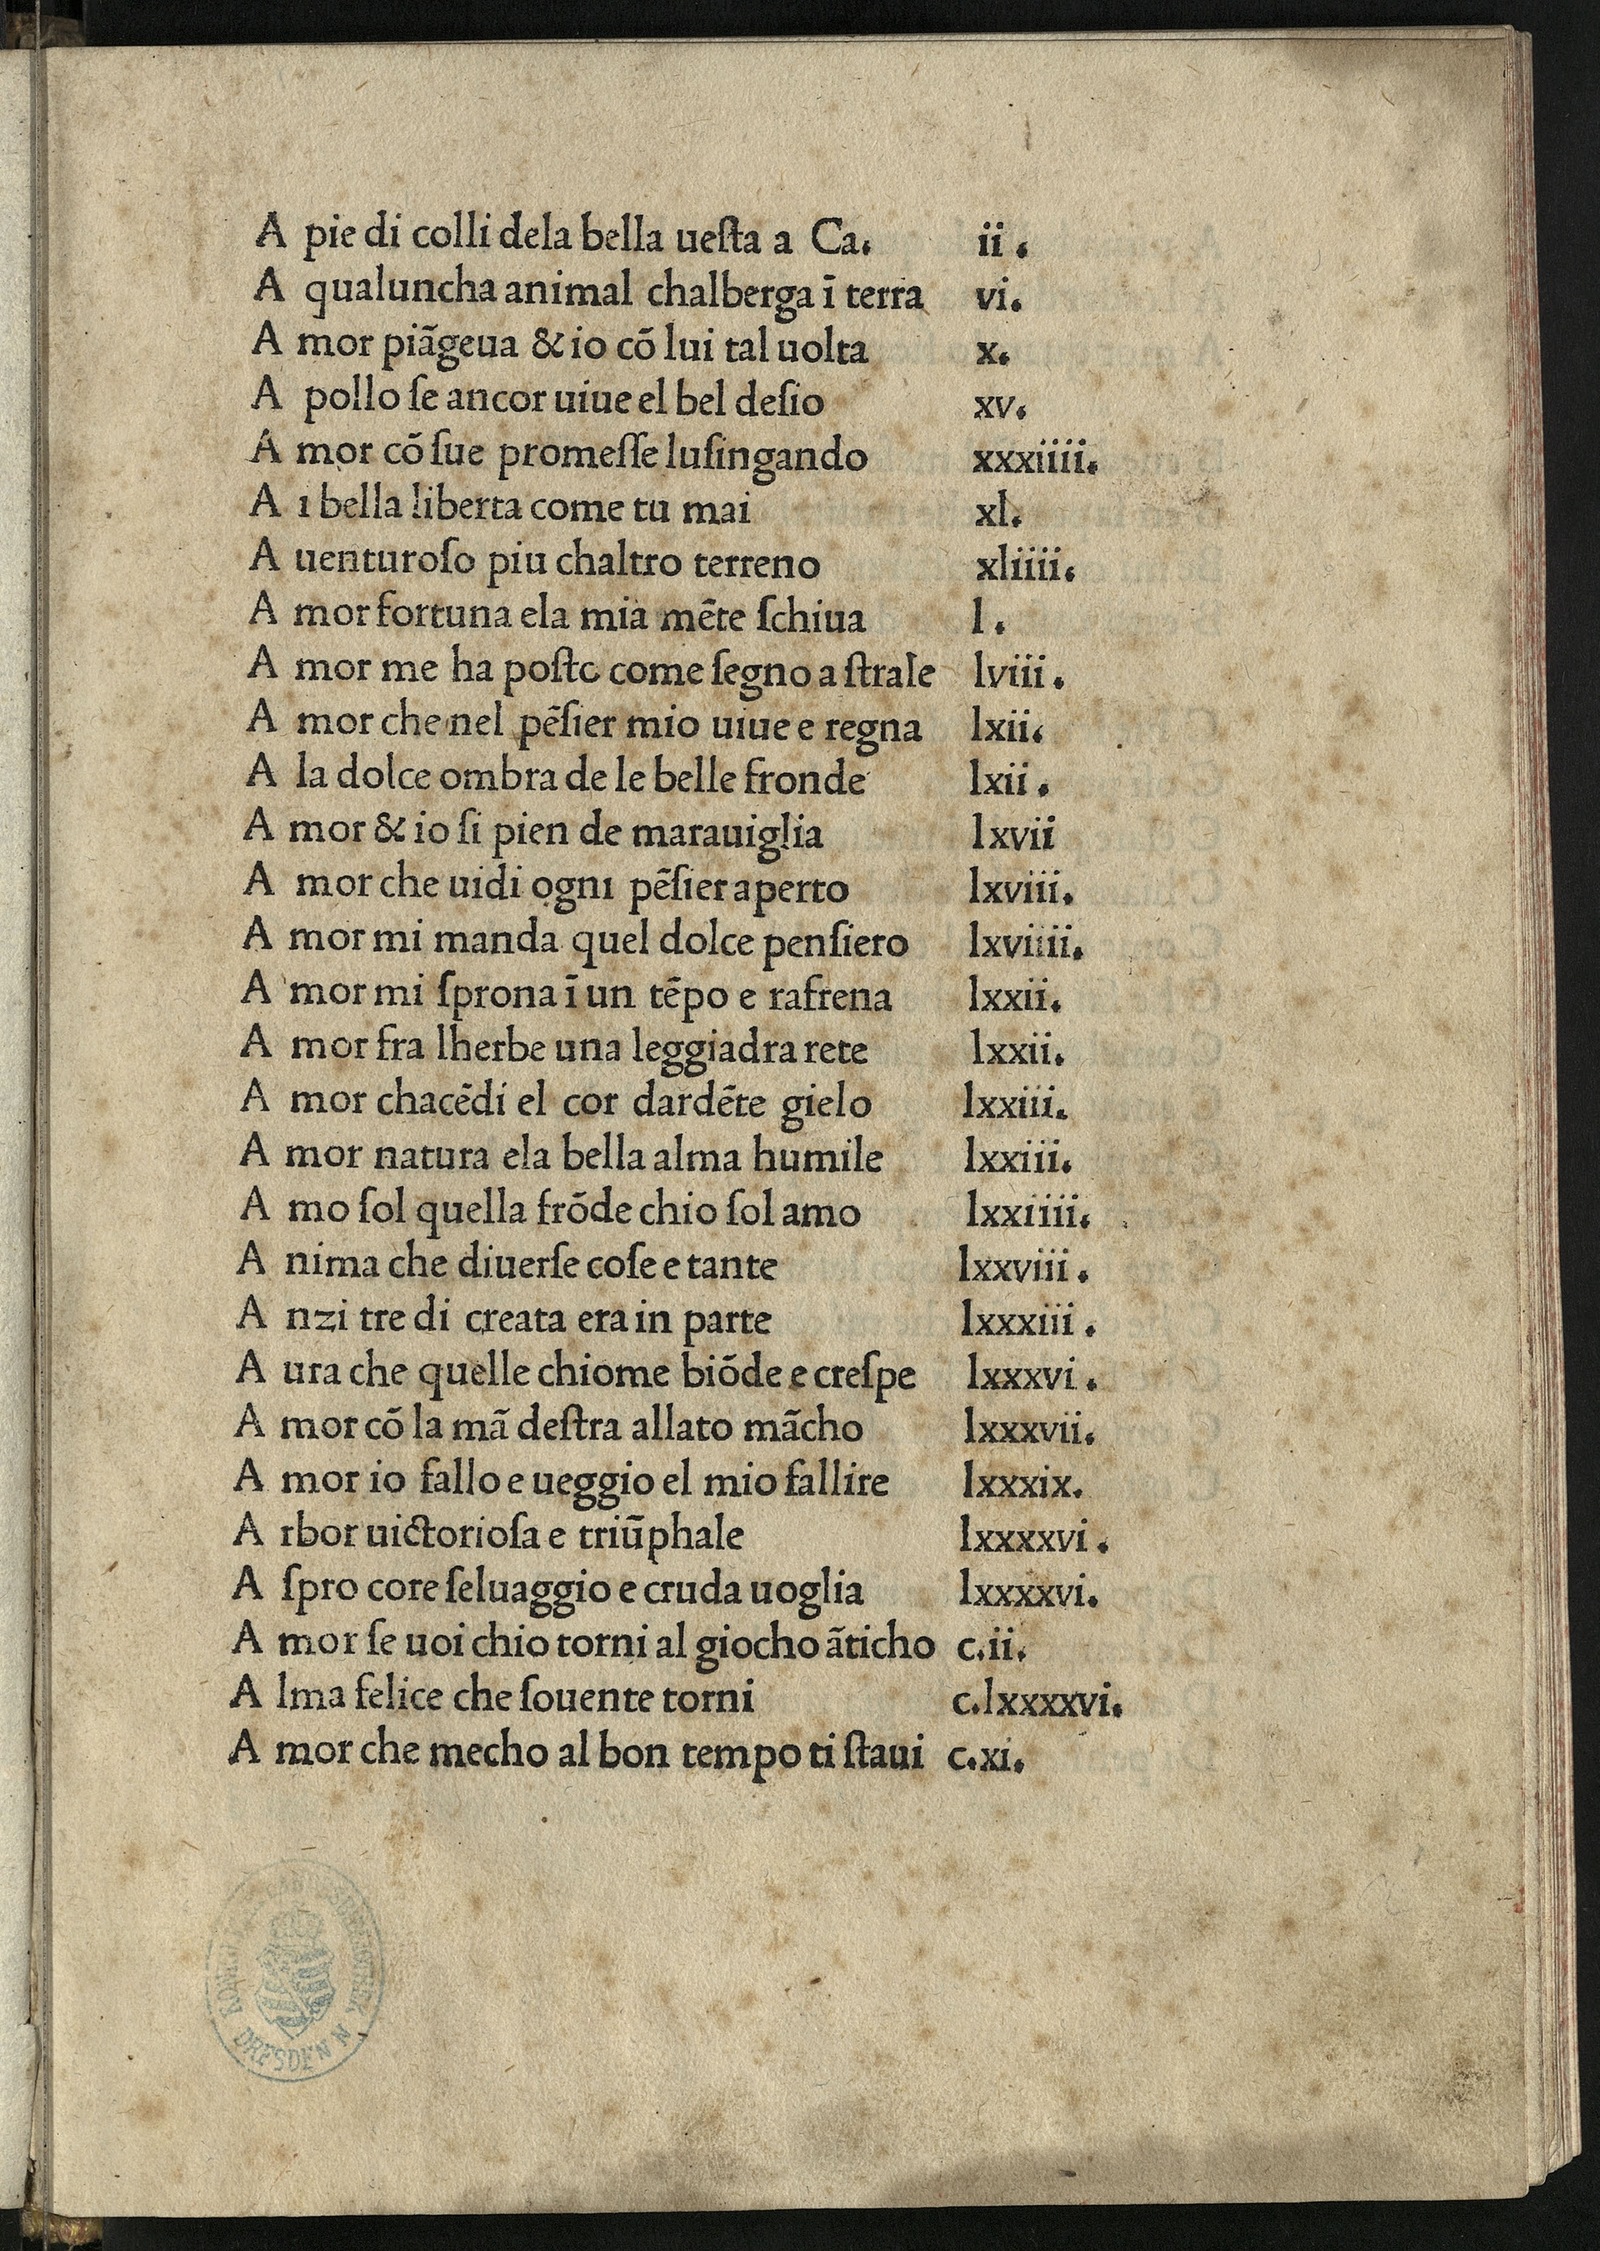 A pie di colli dela bella ueſta a Ca. ii .
A qualuncha animal chalberga ī terra vi.
A mor piãgeua & io cõ lui tal uolta x.
A pollo ſe ancor uiue el bel deſio xv.
A mor cõ ſue promeſſe luſingando xxxiiii.
A i bella liberta come tu mai xl.
A uenturoſo piu chaltro terreno xliiii.
A mor fortuna ela mia mẽte ſchiua l .
A mor me ha poſto come ſegno a ſtrale lviii .
A mor che nel pẽſier mio uiue e regna lxii.
A la dolce ombra de le belle fronde lxii .
A mor & io ſi pien de marauiglia lxvii
A mor che uidi ogni pẽſier aperto lxviii.
A mor mi manda quel dolce penſiero lxviiii.
A mor mi ſprona ī un tẽpo e rafrena lxxii.
A mor fra lherbe una leggiadra rete lxxii.
A mor chacẽdi el cor dardẽte gielo lxxiii.
A mor natura ela bella alma humile lxxiii.
A mo ſol quella frõde chio ſol amo lxxiiii.
A nima che diuerſe coſe e tante lxxviii .
A nzi tre di creata era in parte lxxxiii .
A ura che quelle chiome biõde e creſpe lxxxvi .
A mor cõ la mã deſtra allato mãcho lxxxvii.
A mor io fallo e ueggio el mio fallire lxxxix.
A rbor uictorioſa e triũphale lxxxxvi .
A ſpro core ſeluaggio e cruda uoglia lxxxxvi.
A mor ſe uoi chio torni al giocho ãticho c.ii.
A lma felice che ſouente torni c.lxxxxvi.
A mor che mecho al bon tempo ti ſtaui c.xi.
DRESDEN N